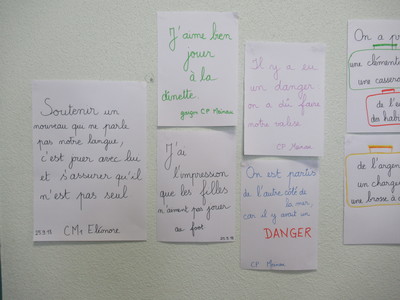 Soutenir un
nouveau qui ne parle
pas notre langue,
c'est jouer avec lui
et s'assurer qu'il
n'est pas seul
CM1 Eléonore
J'aime bien
jouer
à la
dinette.
garçon CP
J'ai
l'impression
que les filles
n'aiment pas jouer
au foot
Il y a eu
un danger
on a dû faire
notre valise
CP
On est partis
de l'autre côté de
la mer,
car il y avait un
DANGER
CP
On a
une
une
de l'
des
de l'argen
un charg
une brosse à